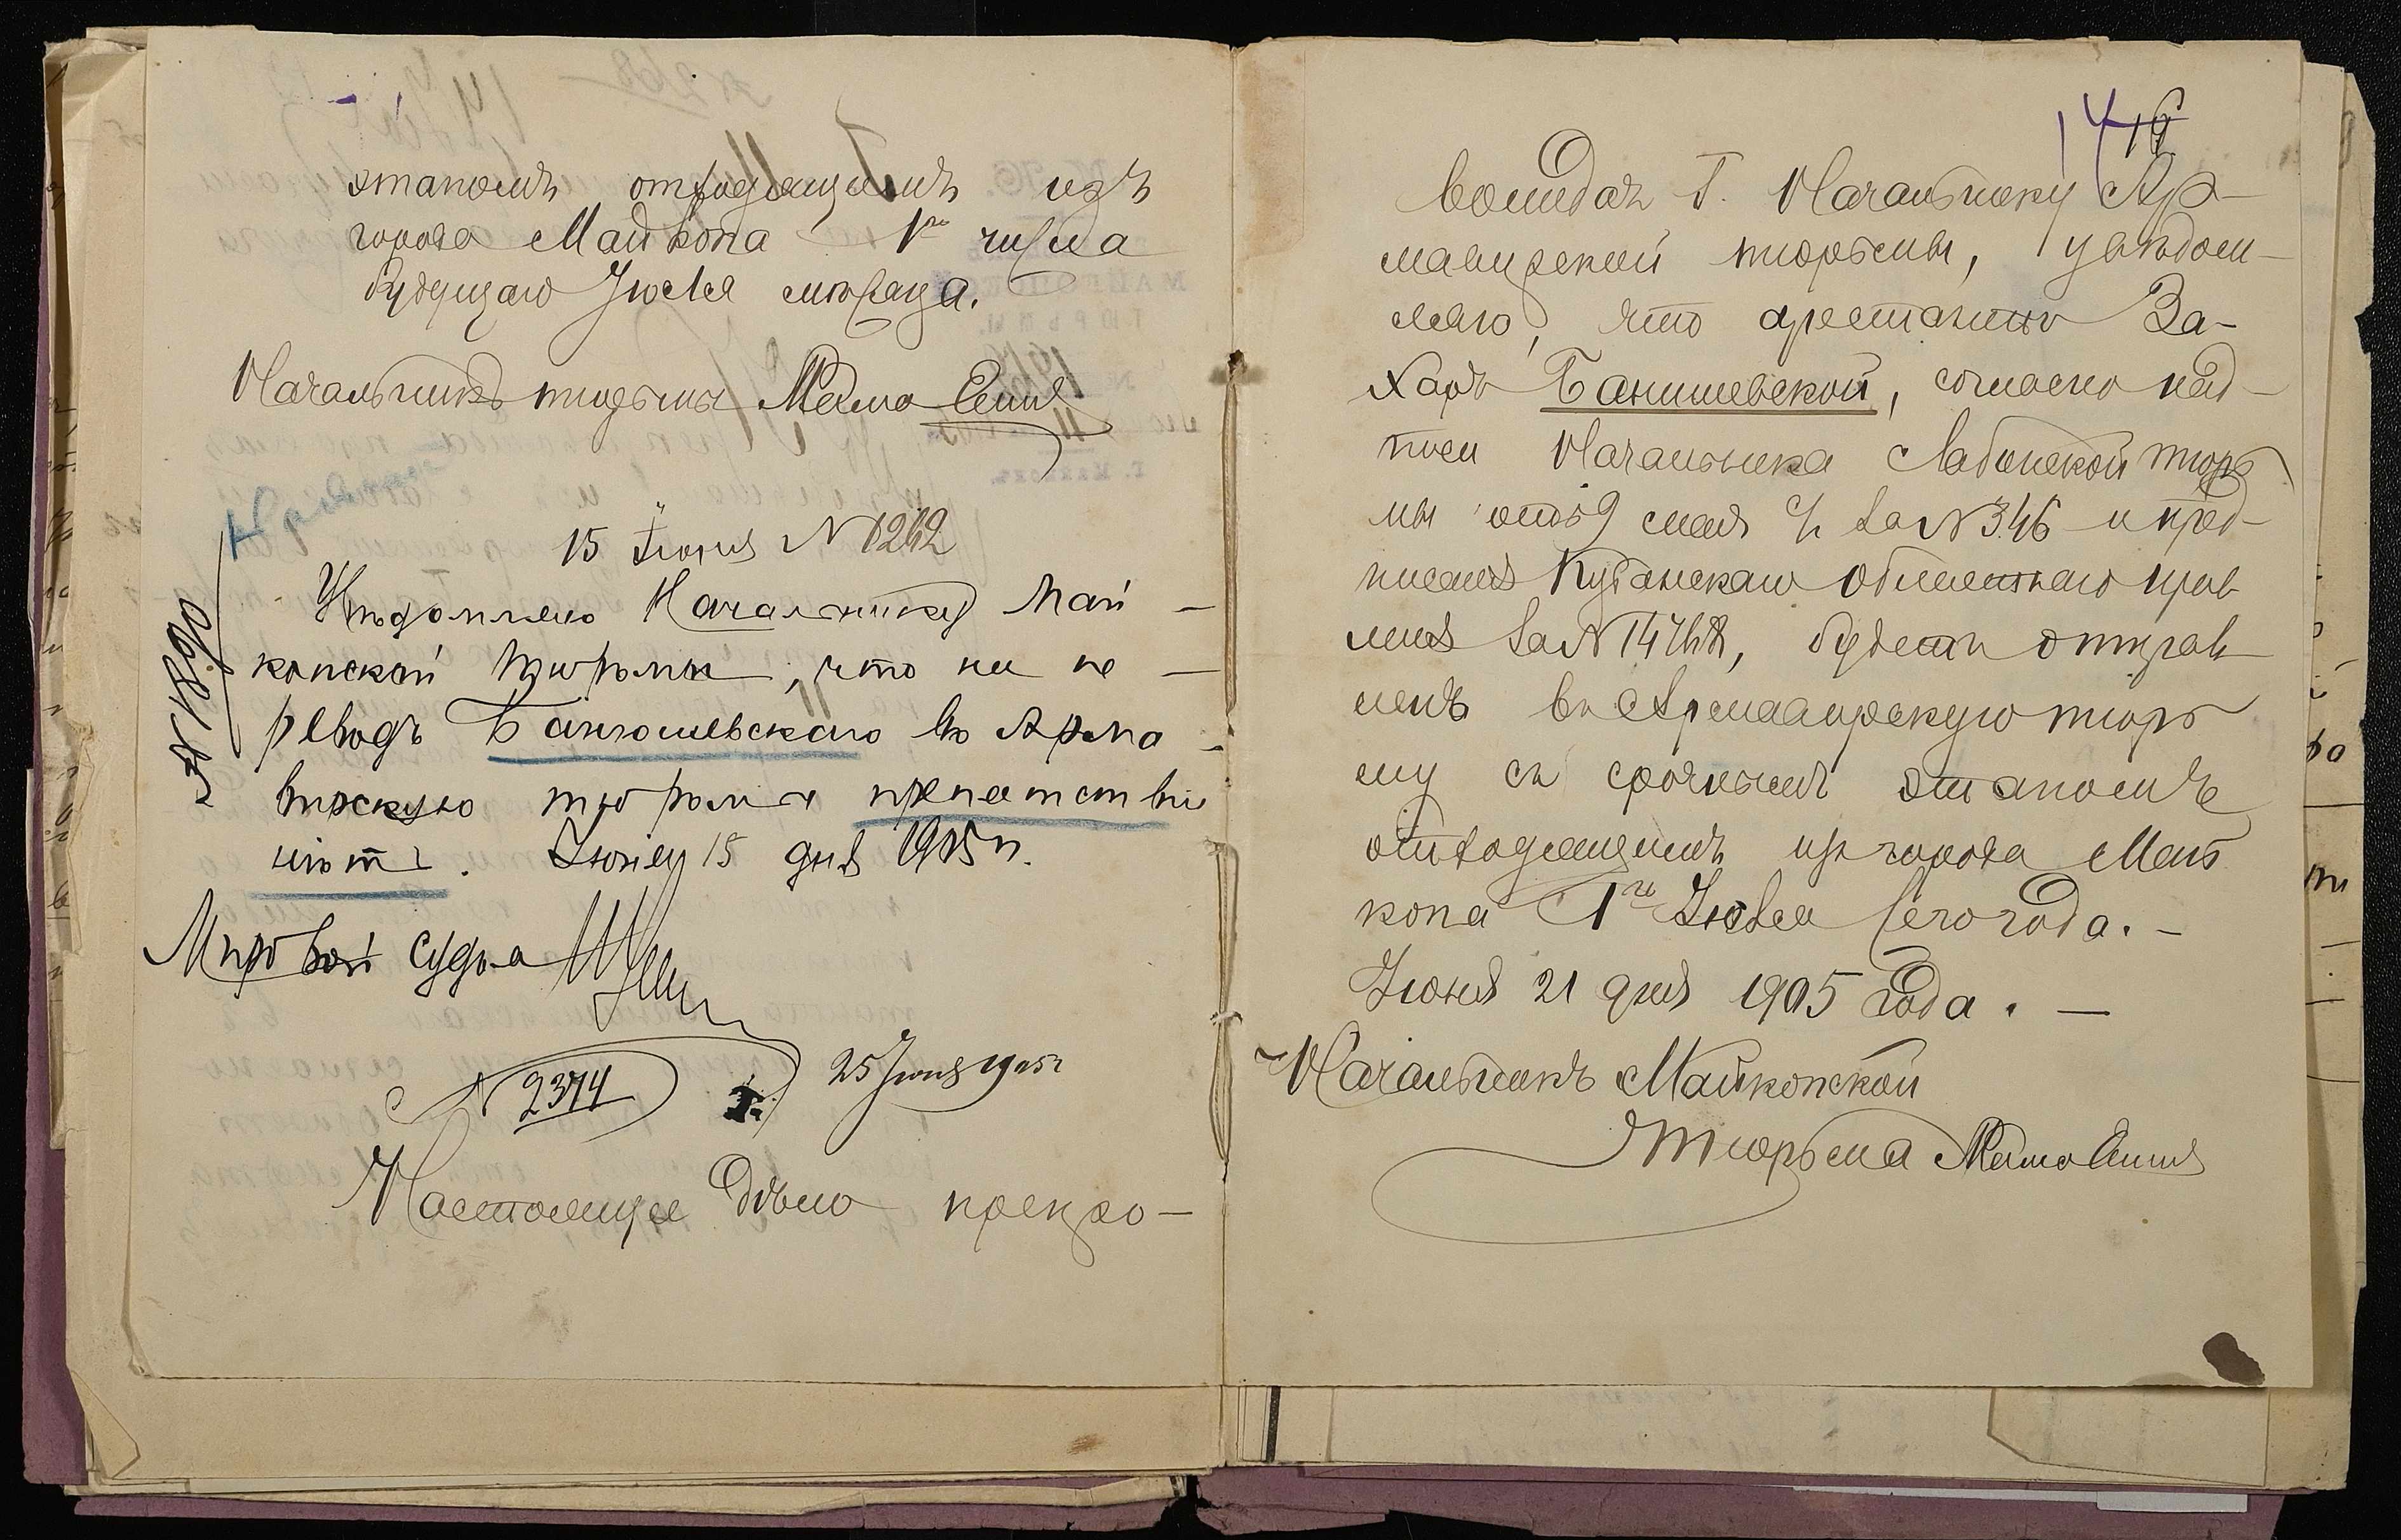 этапомъ отходящимъ изъ
города Майкопа 1го числа
будущаго Июля мѣсяца.
Начальникъ тюрьмы
15 Іюня N 1212
Увѣдомляю Начальнику Май-
копской тюрьмы, что на пе-
реводъ Банюшевскаго во Арма-
вирскую тюрьму препятствій
нѣтъ. Іюня 15 дня 1905 г.
Мировой Судья
N 2374 25 Іюня 1905 г
Настоящее дѣло препро-
14 16
вождая Г. Начальнику Ар-
мавирской тюрьмы, увѣдом-
ляю, что арестантъ За-
харъ Банишевской, согласно над-
писи Начальника Лабинской тюрь
мы отъ 9 мая с/г за N 346 и пред-
писанія Кубанскаго Областнаго прав
ленія за N, будетъ отправ
ленъ въ Армавирскую тюрь
му съ срочнымъ этапомъ
отходящимъ изъ города Май
копа 1го Июля сего года. -
Июня 21 дня 1905 года. -
Начальникъ Майкопской
тюрьмы